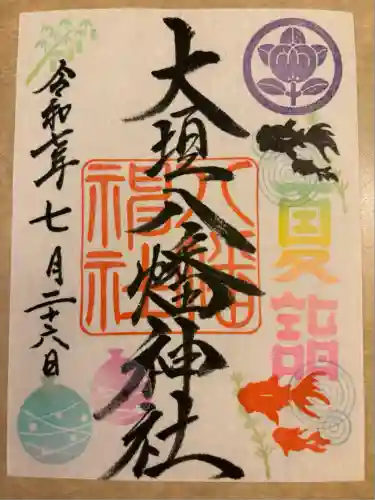 夏詣
大垣八幡神社
八幡神社
令和七年七月二十六日